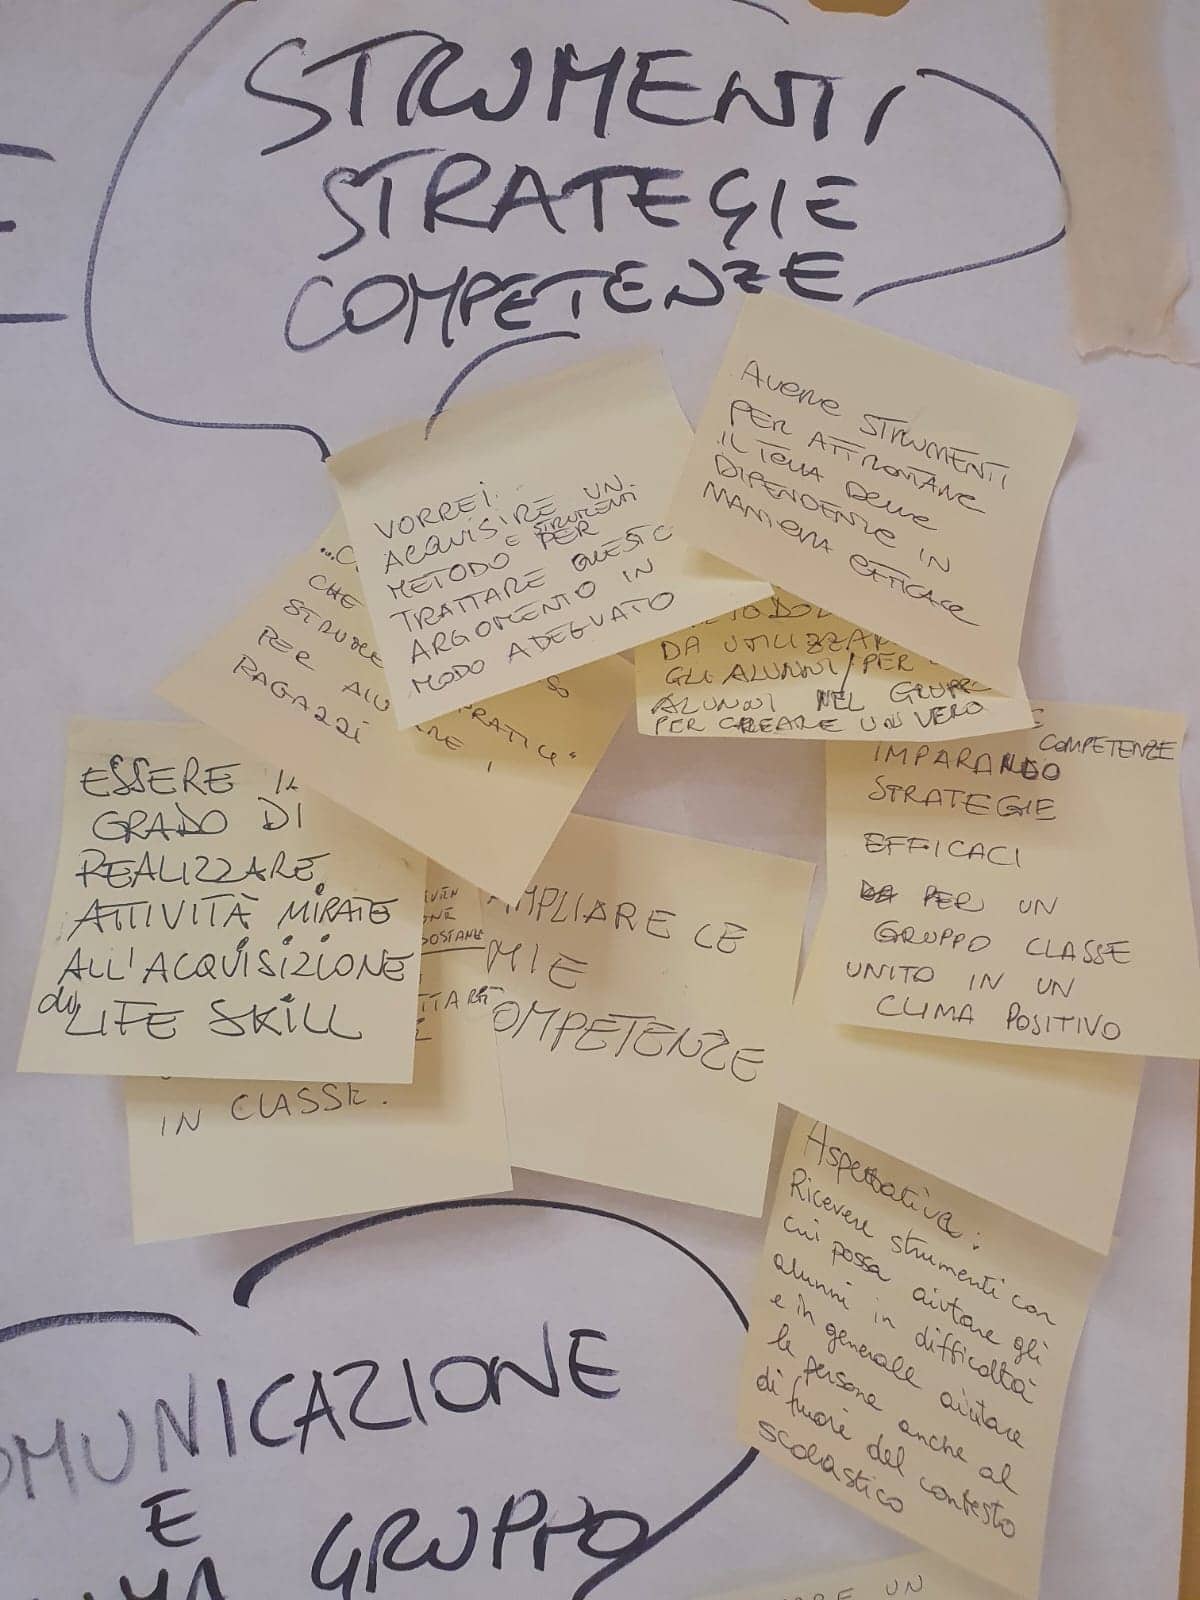 STRUMENTI
STRATEGIE
COMPETENZE
AVERE STRUMENTI
PER AFFRONTARE
IL TEMA DELLE
DIPENDENZE IN
MANIERA EFFICACE
VORREI
ACQUISIRE UN
METODO E STRUMENTI PER
TRATTARE QUESTO
ARGOMENTO IN
MODO ADEGUATO
CHE
PER
RAGAZZI
DA UTILIZZAR
GLI ALUNNI/PER
ALUNNI NEL GRUPP
PER CREARE UN VERO
E COMPETENZE
IMPARANDO
STRATEGIE
EFFICACI
PER UN
GRUPPO CLASSE
UNITO IN UN
CLIMA POSITIVO
ESSERE IN
GRADO DI
REALIZZARE
ATTIVITÀ MIRATE
ALL'ACQUISIZIONE
di LIFE SKILL
IN CLASSE.
AMPLIARE LE
MIE
COMPETENZE
Aspettativa:
Ricevere strumenti con
cui possa aiutare gli
alunni in difficoltà
e in generale aiutare
le persone anche al
di fuori del contesto
scolastico
OMUNICAZIONE
E
GRUPPO
UN